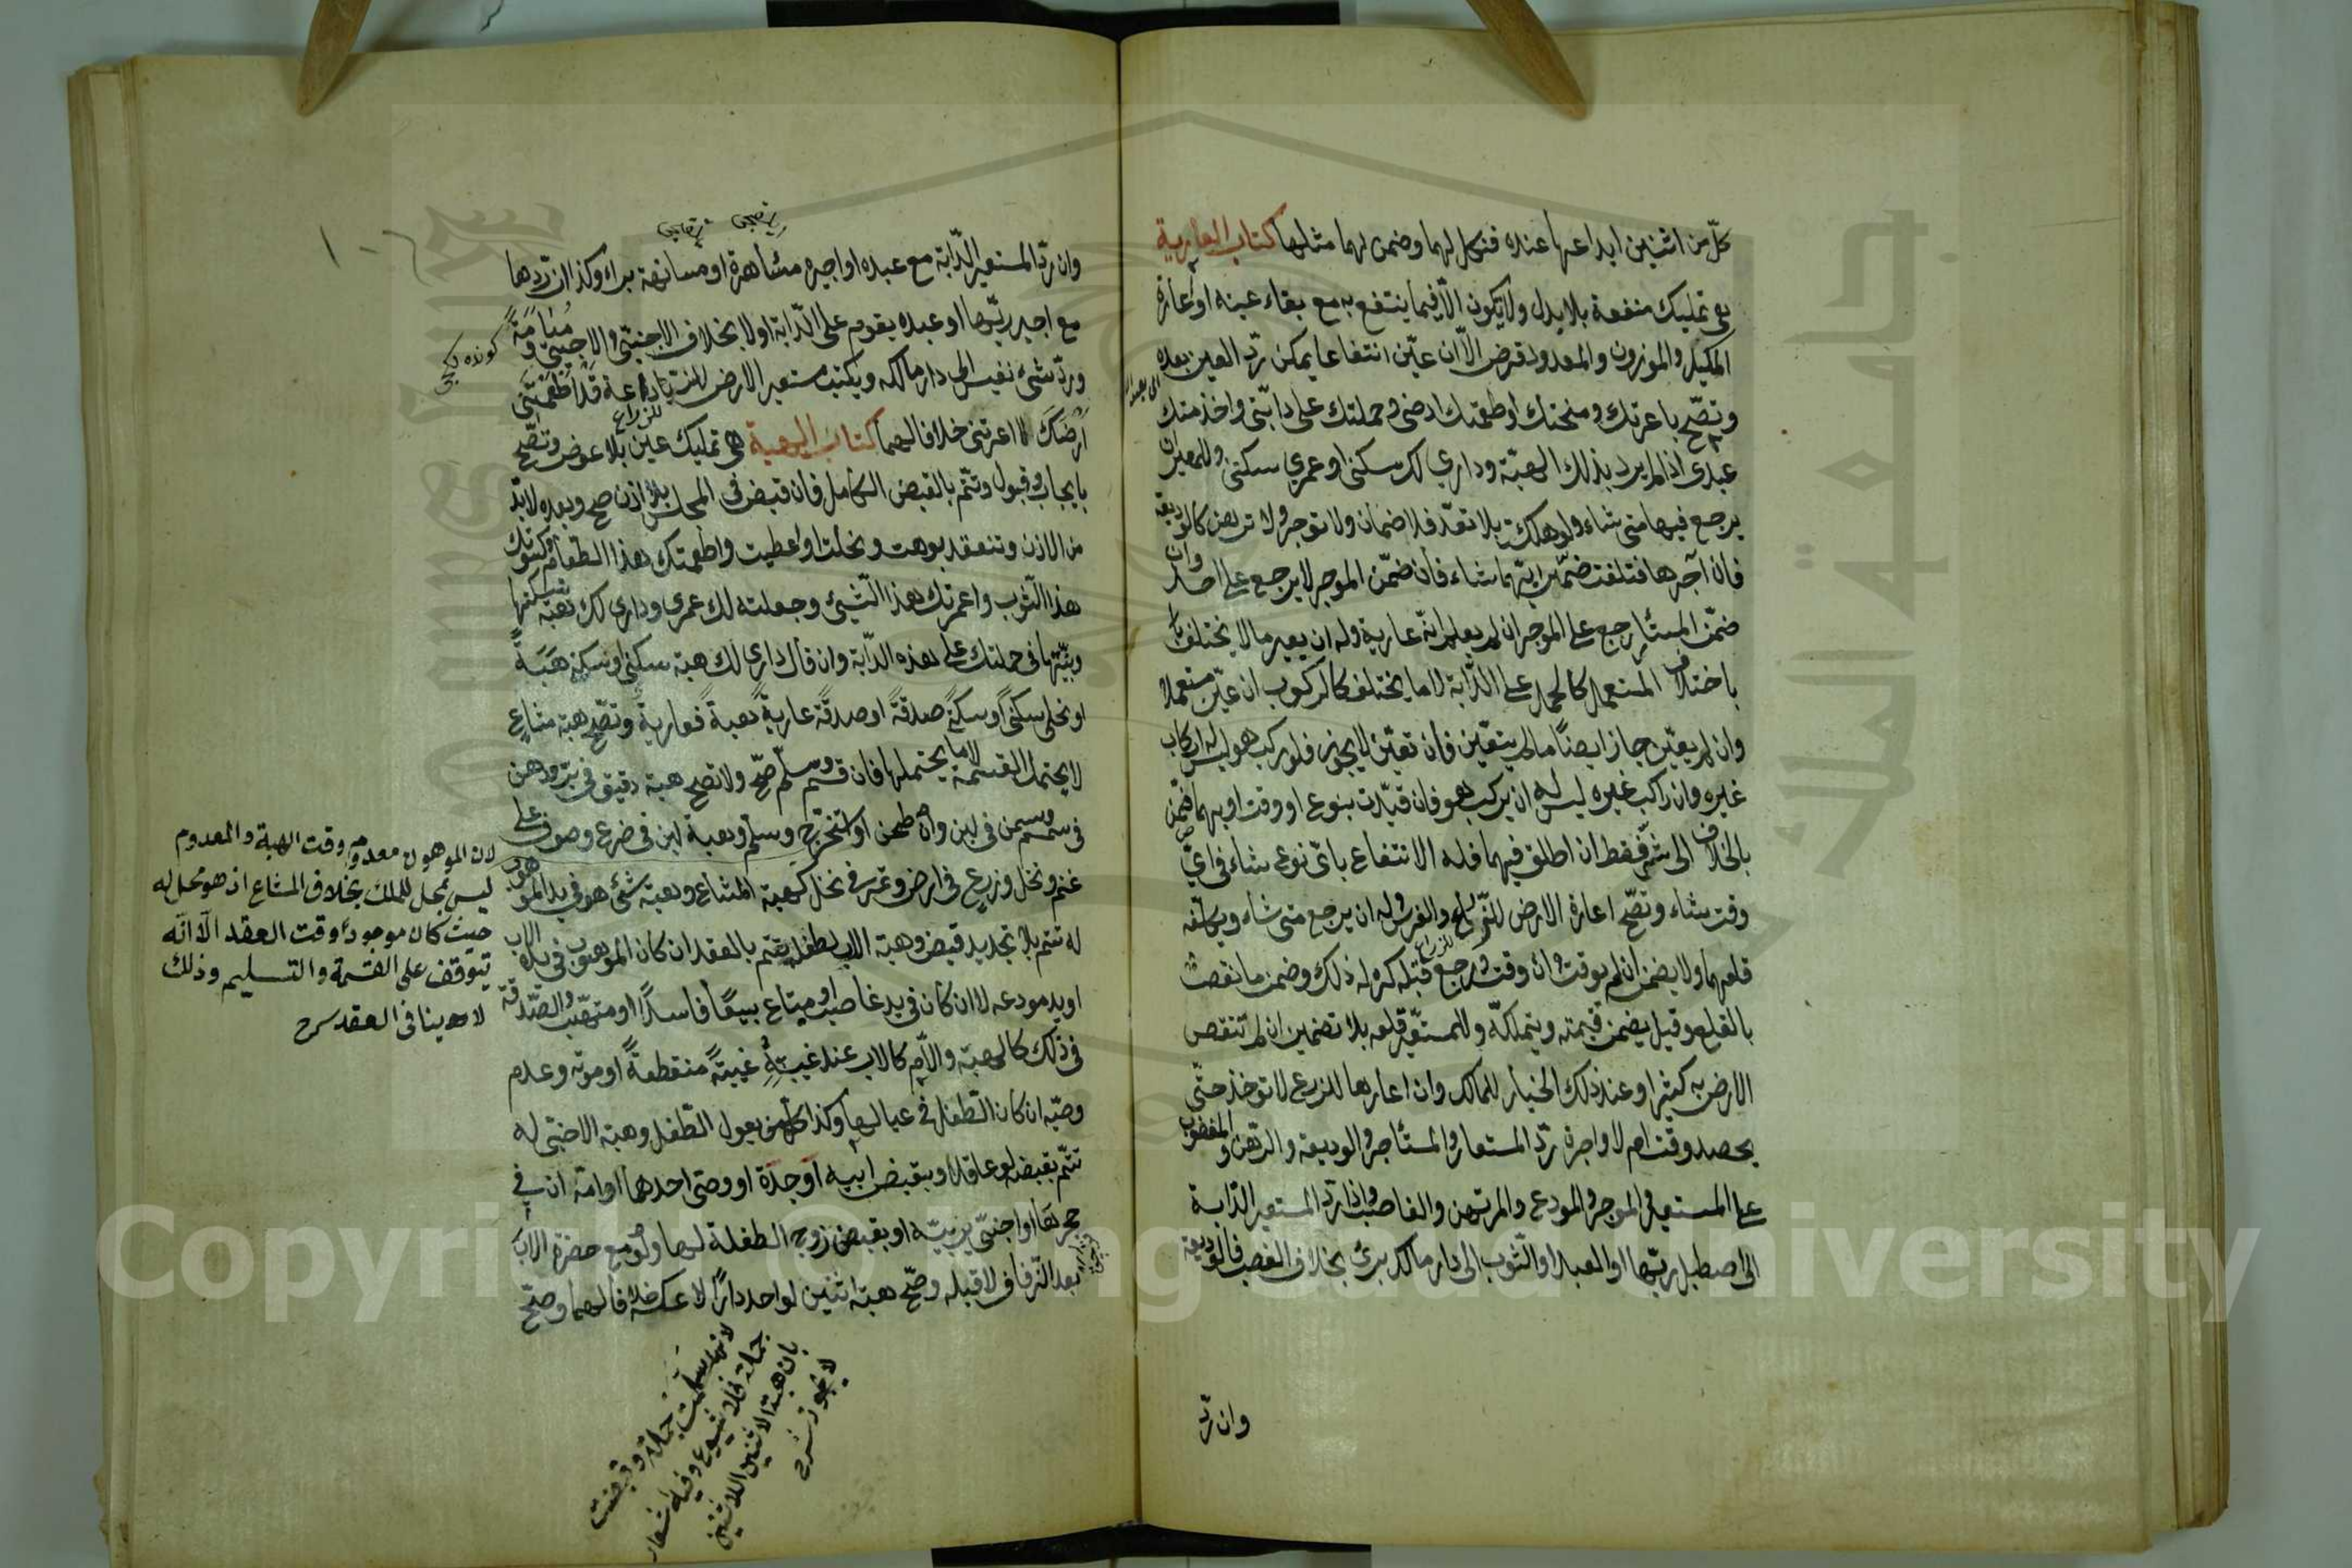 كلّ من اثنين ايداعها عنده فنكل لهما وضمن لهما مثلها كتاب العارية
هى تمليك منفعة بلا بدل ولا يكون الّا فيما ينتفع به مع بقاء عينه او عارة
المكيل والموزون والمعدود قرض الّا ان عيّن انتفاعا يمكن ردّ العين بعده
وتصحّ باعرتك ومنحتك واطعمتك ارضى وحملتك على دابّتى واخدمتك
عبدى اذا لم يرد بذلك الهبة ودارى لك سكنى او عمرى سكنى وللمعير ان
يرجع فيها متى شاء ولو هلكت بلا تعدّ فلا ضمان ولا توجر ولا ترهن كالوديعة
فان آجرها فتلفت ضمّن ايّهما شاء فان ضمّن الموجر لا يرجع على احد وان
ضمّن المستأجر رجع على الموجر ان لم يعلم انّه عارية وله ان يعير ما لا يختلف
باختلاف المستعمل كالحمل على الدّابة لا ما يختلف كالركوب ان عيّن مستعملا
وان لم يعيّن جاز ايضًا ما لم يتعيّن فان تعيّن لا يجوز فلو ركب هو ليس له اركاب
غيره وان اركب غيره ليس له ان يركب هو فان قيّدت بنوع او وقت او بهما ضمن
بالخلاف الى شرّ فقط ان اطلق فيهما فله الانتفاع باىّ نوع شاء فى اىّ
وقت شاء وتصحّ اعارة الارض للبناء والغرس وله ان يرجع متى شاء ويكلّفه
قلعهما ولا يضمن ان لم يوقت وان وقت ورجع قبله كره له ذلك وضمن ما نقص
بالقلع وقيل يضمن قيمته ويتملكه وللمستعير قلعه بلا تضمين ان لم تنقص
الارض به كثيرا وعند ذلك الخيار للمالك وان اعارها للزرع لا تؤخذ حتّى
يحصد وقت ام لا واجرة ردّ المستعار والمستأجر والوديعة والرهن والمغصوب
على المستعير والموجر والمودع والمرتهن والغاصب واذا ردّ المستعير الدّابة
الى اصطبل ربّها او العبد او الثّوب الى دار مالكه برئ بخلاف الغصب والوديعة
وان ردّ
وان ردّ المستعير الدّابة مع عبده او اجيره مشاهرة او مسانهة برئ وكذا ان ردّها
مع اجير ربّها او عبده يقوم على الدّابة او لا بخلاف الاجنبىّ والاجير مياومة
وردّ شىء نفيس الى دار مالكه ويكتب مستعير الارض للزراعة قد اطعمتنى
ارضك لا اعرتنى خلافا لهما كتاب الهبة هى تمليك عين بلا عوض وتصحّ
بايجاب وقبول وتتمّ بالقبض الكامل فان قبض فى المجلس بلا اذن صح وبعده لا بدّ
من الاذن وتنعقد بوهبت ونحلت واعطيت واطعمتك هذا الطعام وكسوتك
هذا الثوب واعمرتك هذا الشّيئ وجعلته لك عمرى ودارى لك هبة تسكنها
وبنيّتها فى حملتك على هذه الدّابة وان قال دارى لك هبة سكنى او سكنى هبة
او نحلى سكنى او سكنى صدقة او صدقة عارية او هبة فعارية وتصحّ هبة مشاع
لا يحتمل القسمة لا ما يحتملها فان قسم وسلّم صحّ ولا تصح هبة دقيق فى برّ ودهن
فى سمسم وسمن فى لبن وان طحن او استخرج وسلّم وهبة لبن فى ضرع وصوف على
غنم ونخل وزرع فى ارض وتمر فى نخل كهبة المشاع وهبة شئ هو فى يد الموهوب
له تتم بلا تجديد قبض وهبة الاب لطفله تتم بالعقد ان كان الموهوب فى يد الاب
او يد مودعه لا ان كان فى يد غاصب او مبتاع بيعًا فاسدًا او متهب والصّدقة
فى ذلك كالهبة والامّ كالاب عند غيبته غيبةً منقطعةً او موته وعدم
وصيّه ان كان الطفل فى عيالها وكذا كل من يعول الطّفل وهبة الاجنبى له
تتمّ بقبضه لو عاقلا وبقبض ابيه او جدّه او وصى احدهما او امّه ان فى
حجرها او اجنبىّ يربّيه او بقبض زوج الطفلة لها ولو مع حضرة الاب
بعد الزّفاف لا قبله وصحّ هبة اثنين لواحد دارًا لا عكسه خلافا لهما وصحّ
لان الموهوب معدوم وقت الهبة والمعدوم
ليس بمحل للملك بخلاف المشاع اذ هو محل له
حيث كان موجودًا وقت العقد الّا انّه
يتوقف على القسمة والتسليم وذلك
لا ينافى العقد شرح
لانهما سلّمت جملة وقبضت
جملة فلا شيوع وفيه اشعار
بان هبة الاثنين للاثنين
لا يجوز شرح
Copyright © King Saud University